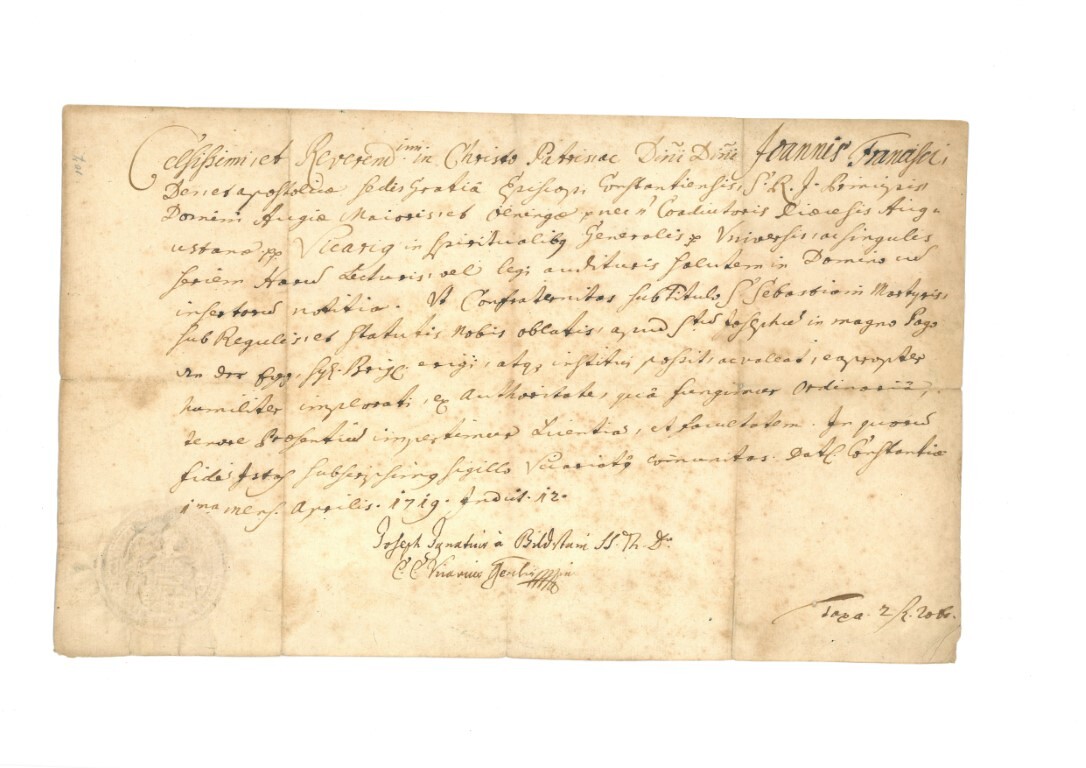 Celsissimi, et Reverend:imi in Christo Patris, ac Dñi Dñi Joannis Francisci,
Dei, et apostolicæ sedis Gratiâ Episcopi Constantiensis, S. R. J. Principis
Domini Augiæ Maioris, et Öeningæ nec n̄ Coadiutoris Diœcesis Aug-
ustanæ pp Vicarius in spiritualibq Generalis Universis, ac singulis
seriem Harū Lecturis, vel legi audituris salutem in Domino cū
insertorū notitia. Ut Confraternitas sub Titulo S. Sebastiani Martyris,
sub Regulis, et statutis nobis oblatis, apud Stū Josephū in magno Pago
An der Egg, erigi, atq; institui possit, ac valeat, eapropter
humiliter implorati, ex Authoritate, quâ fungimur Ordinariâ,
tenore Præsentiū impertimur Licentiā, et facultatem. In quorū
fidē subscripsimq sigillo Vicariatq comunitas. Dat Constantiæ
1ma mens. Aprilis. 1719. Indict. 12.
Joseph Ignatius à Bildstain SS. Th. D.
Vicarius Gen̄lis
Taxa. 2 fl. 20